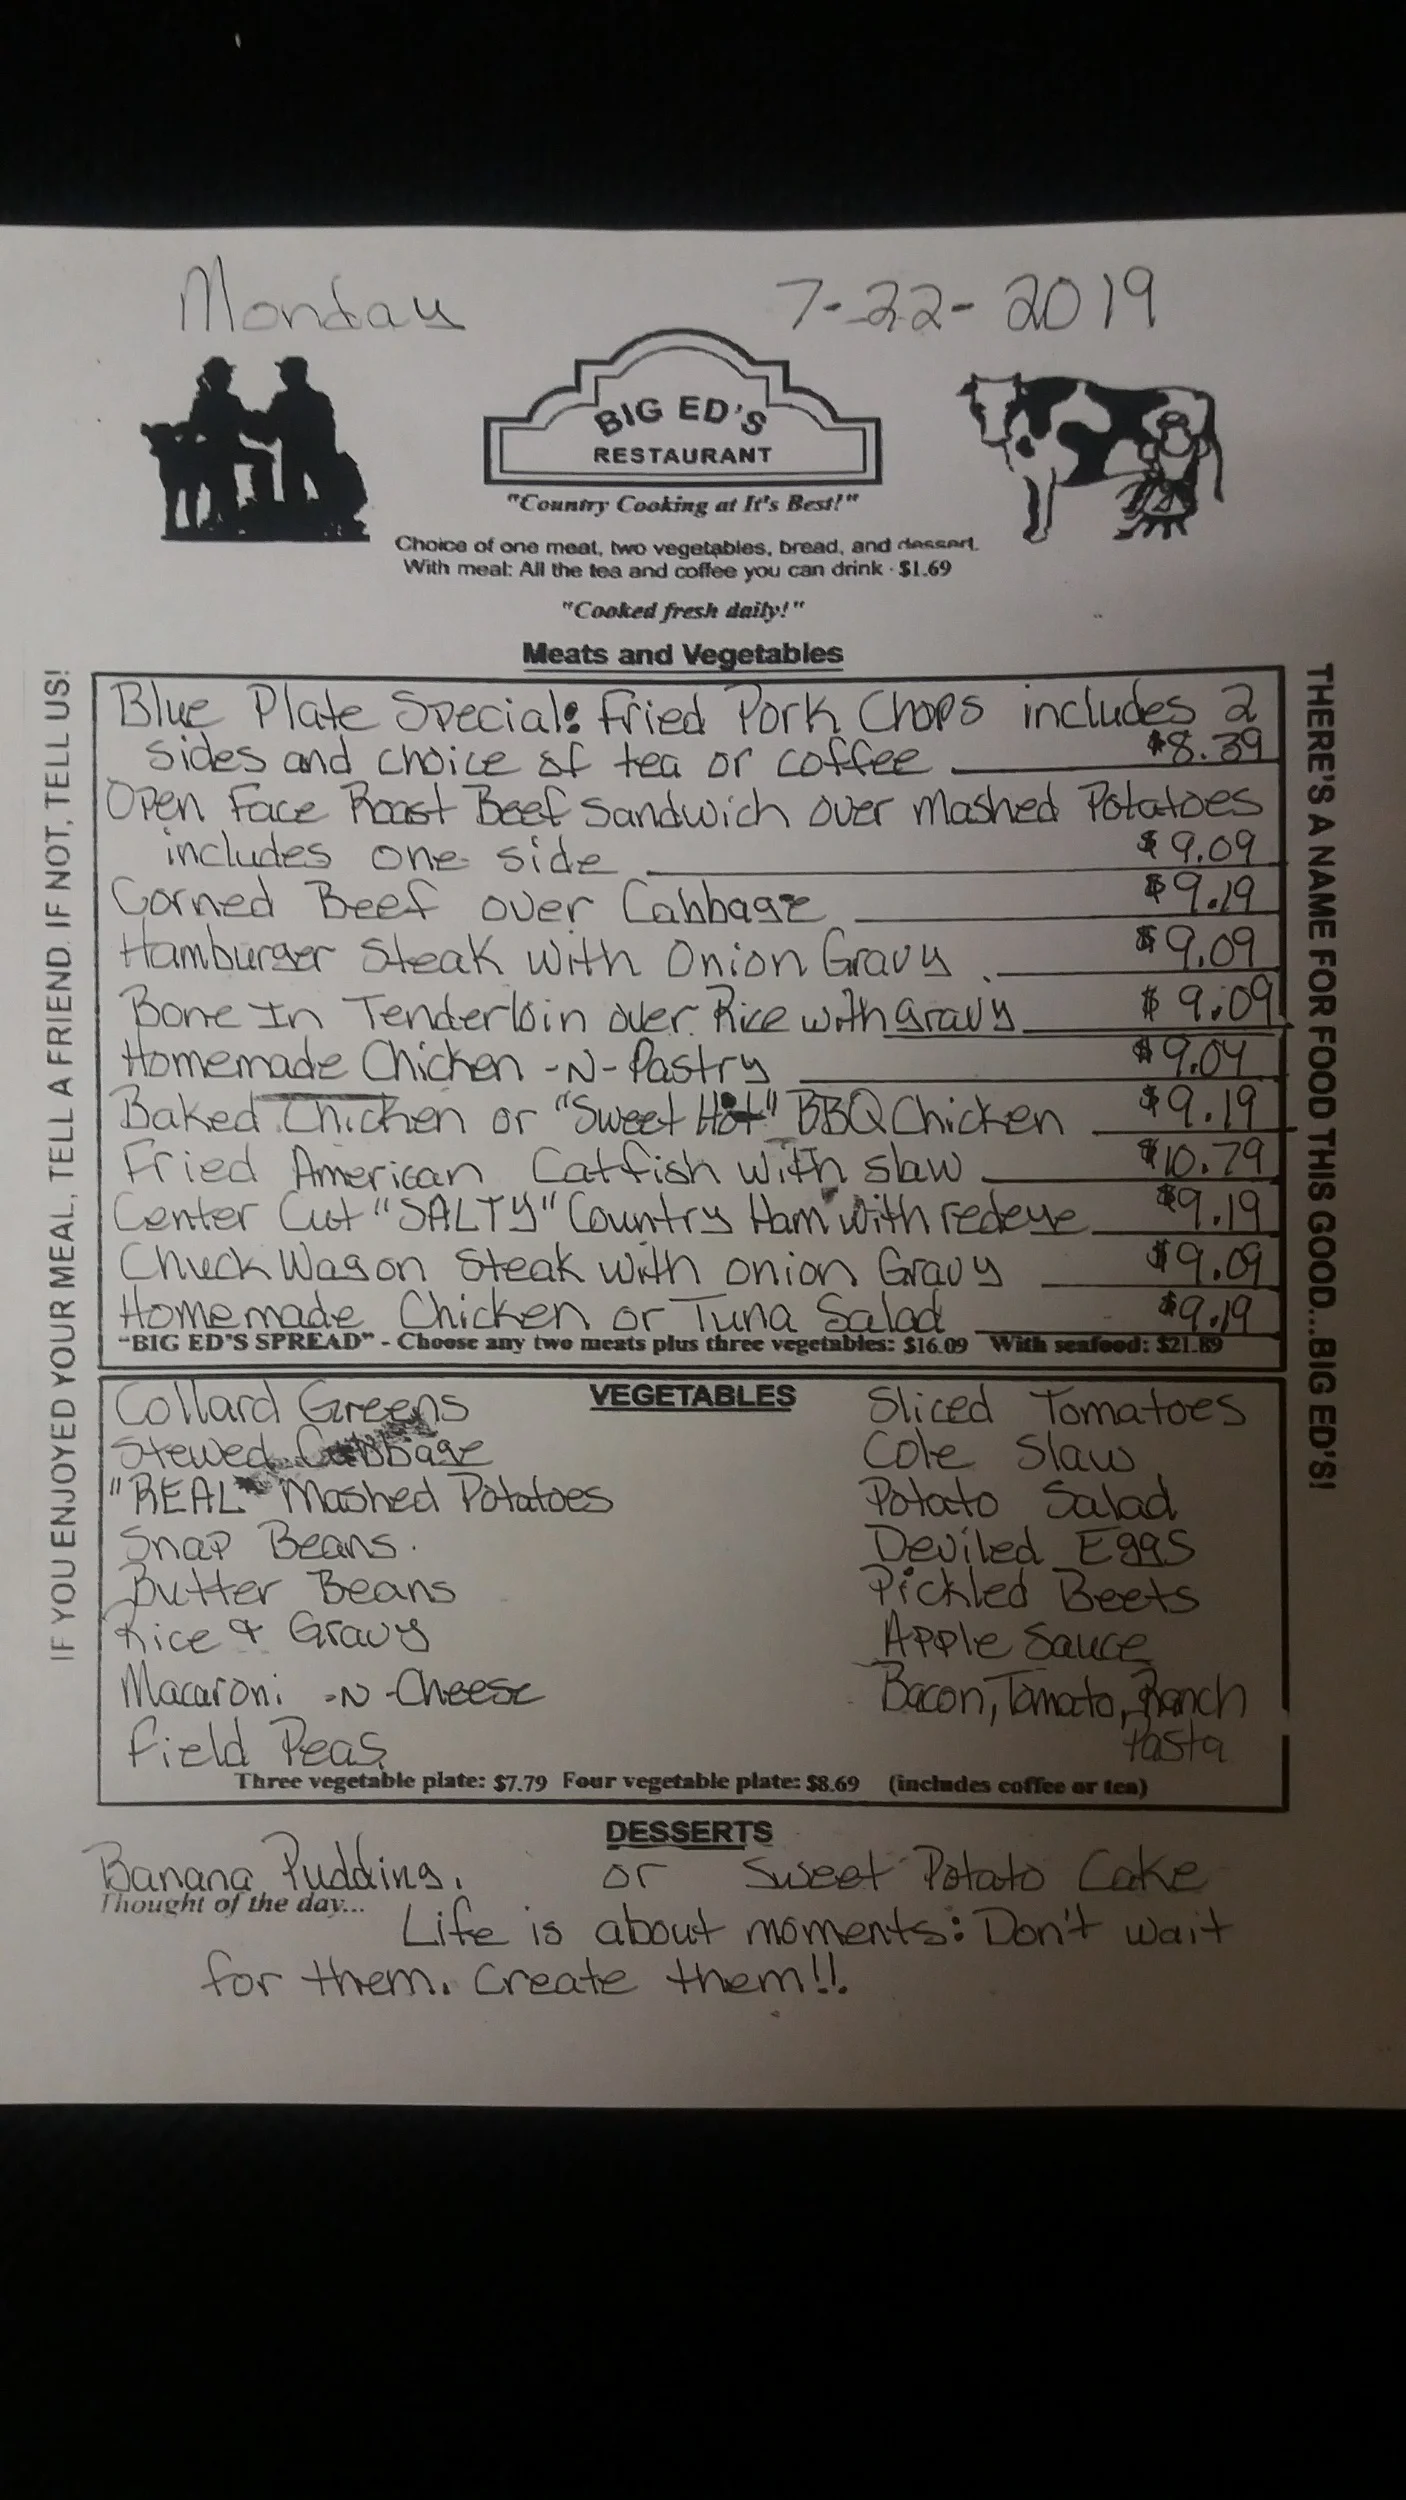 Monday 7-22-2019
BIG ED'S
RESTAURANT
"Country Cooking at It's Best!"
Choice of one meat, two vegetables, bread, and dessert.
With meal: All the tea and coffee you can drink - $1.69
"Cooked fresh daily!"
Meats and Vegetables
Blue Plate Special: Fried Pork Chops includes 2
sides and choice of tea or coffee $8.39
Open Face Roast Beef Sandwich over Mashed Potatoes
includes one side $9.09
Corned Beef over Cabbage $9.19
Hamburger Steak with Onion Gravy $9.09
Bone In Tenderloin over Rice with gravy $9.09
Homemade Chicken -N- Pastry $9.04
Baked Chicken or "Sweet Hot" BBQ Chicken $9.19
Fried American Catfish with slaw $10.79
Center Cut "SALTY" Country Ham with redeye $9.19
Chuck Wagon Steak with onion Gravy $9.09
Homemade Chicken or Tuna Salad $9.19
"BIG ED'S SPREAD" - Choose any two meats plus three vegetables: $16.09 With seafood: $21.89
VEGETABLES
Collard Greens
Stewed Cabbage
"REAL" Mashed Potatoes
Snap Beans.
Butter Beans
Rice & Gravy
Macaroni -N- Cheese
Field Peas
Sliced Tomatoes
Cole Slaw
Potato Salad
Deviled Eggs
Pickled Beets
Apple Sauce
Bacon, Tomato, Ranch
Pasta
Three vegetable plate: $7.79 Four vegetable plate: $8.69 (includes coffee or tea)
DESSERTS
Banana Pudding. or Sweet Potato Cake
Thought of the day...
Life is about moments: Don't wait
for them. Create them!!
IF YOU ENJOYED YOUR MEAL, TELL A FRIEND. IF NOT, TELL US!
THERE'S A NAME FOR FOOD THIS GOOD...BIG ED'S!